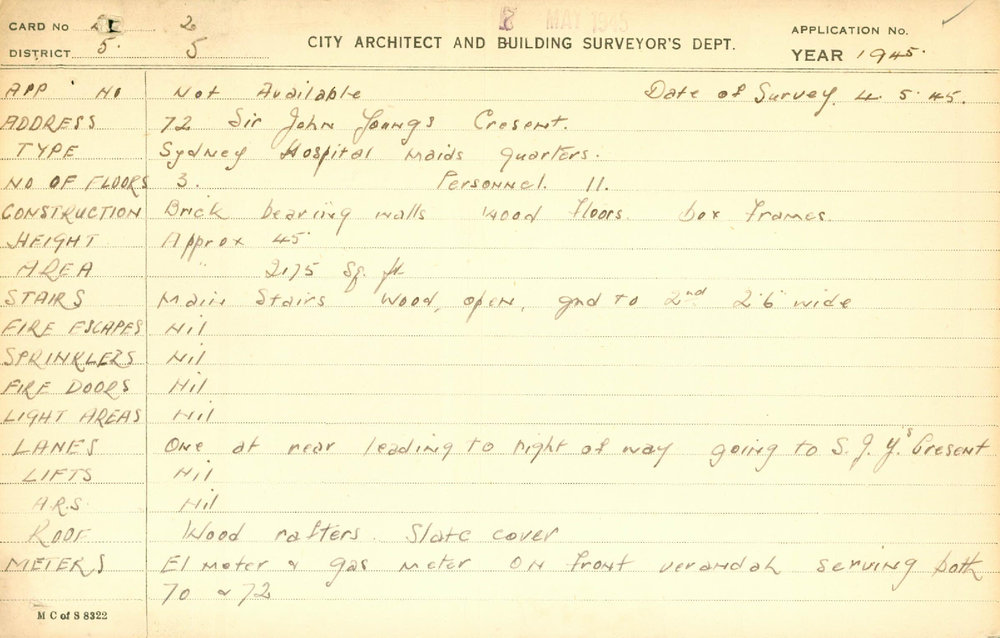 CARD No 2 8 MAY 1945 APPLICATION No.
DISTRICT 5. 5 CITY ARCHITECT AND BUILDING SURVEYOR'S DEPT. YEAR 1945.
APP No Not Available Date of Survey. 4. 5. 45.
ADDRESS 72 Sir John Youngs Cresent.
TYPE Sydney Hospital maids quarters.
NO OF FLOORS 3. Personnel. 11.
CONSTRUCTION Brick bearing walls wood floors. box frames.
HEIGHT Approx 45'
AREA " 2175 sq. ft
STAIRS Main Stairs wood, open, gnd to 2nd 2'6" wide
FIRE ESCAPES Nil
SPRINKLERS Nil
FIRE DOORS Nil
LIGHT AREAS Nil
LANES One at rear leading to right of way going to S. J. Y.'s Cresent
LIFTS Nil
A.R.S. Nil
ROOF Wood rafters. Slate cover
METERS El meter & gas meter on front verandah serving both
70 & 72
M C of S 8322